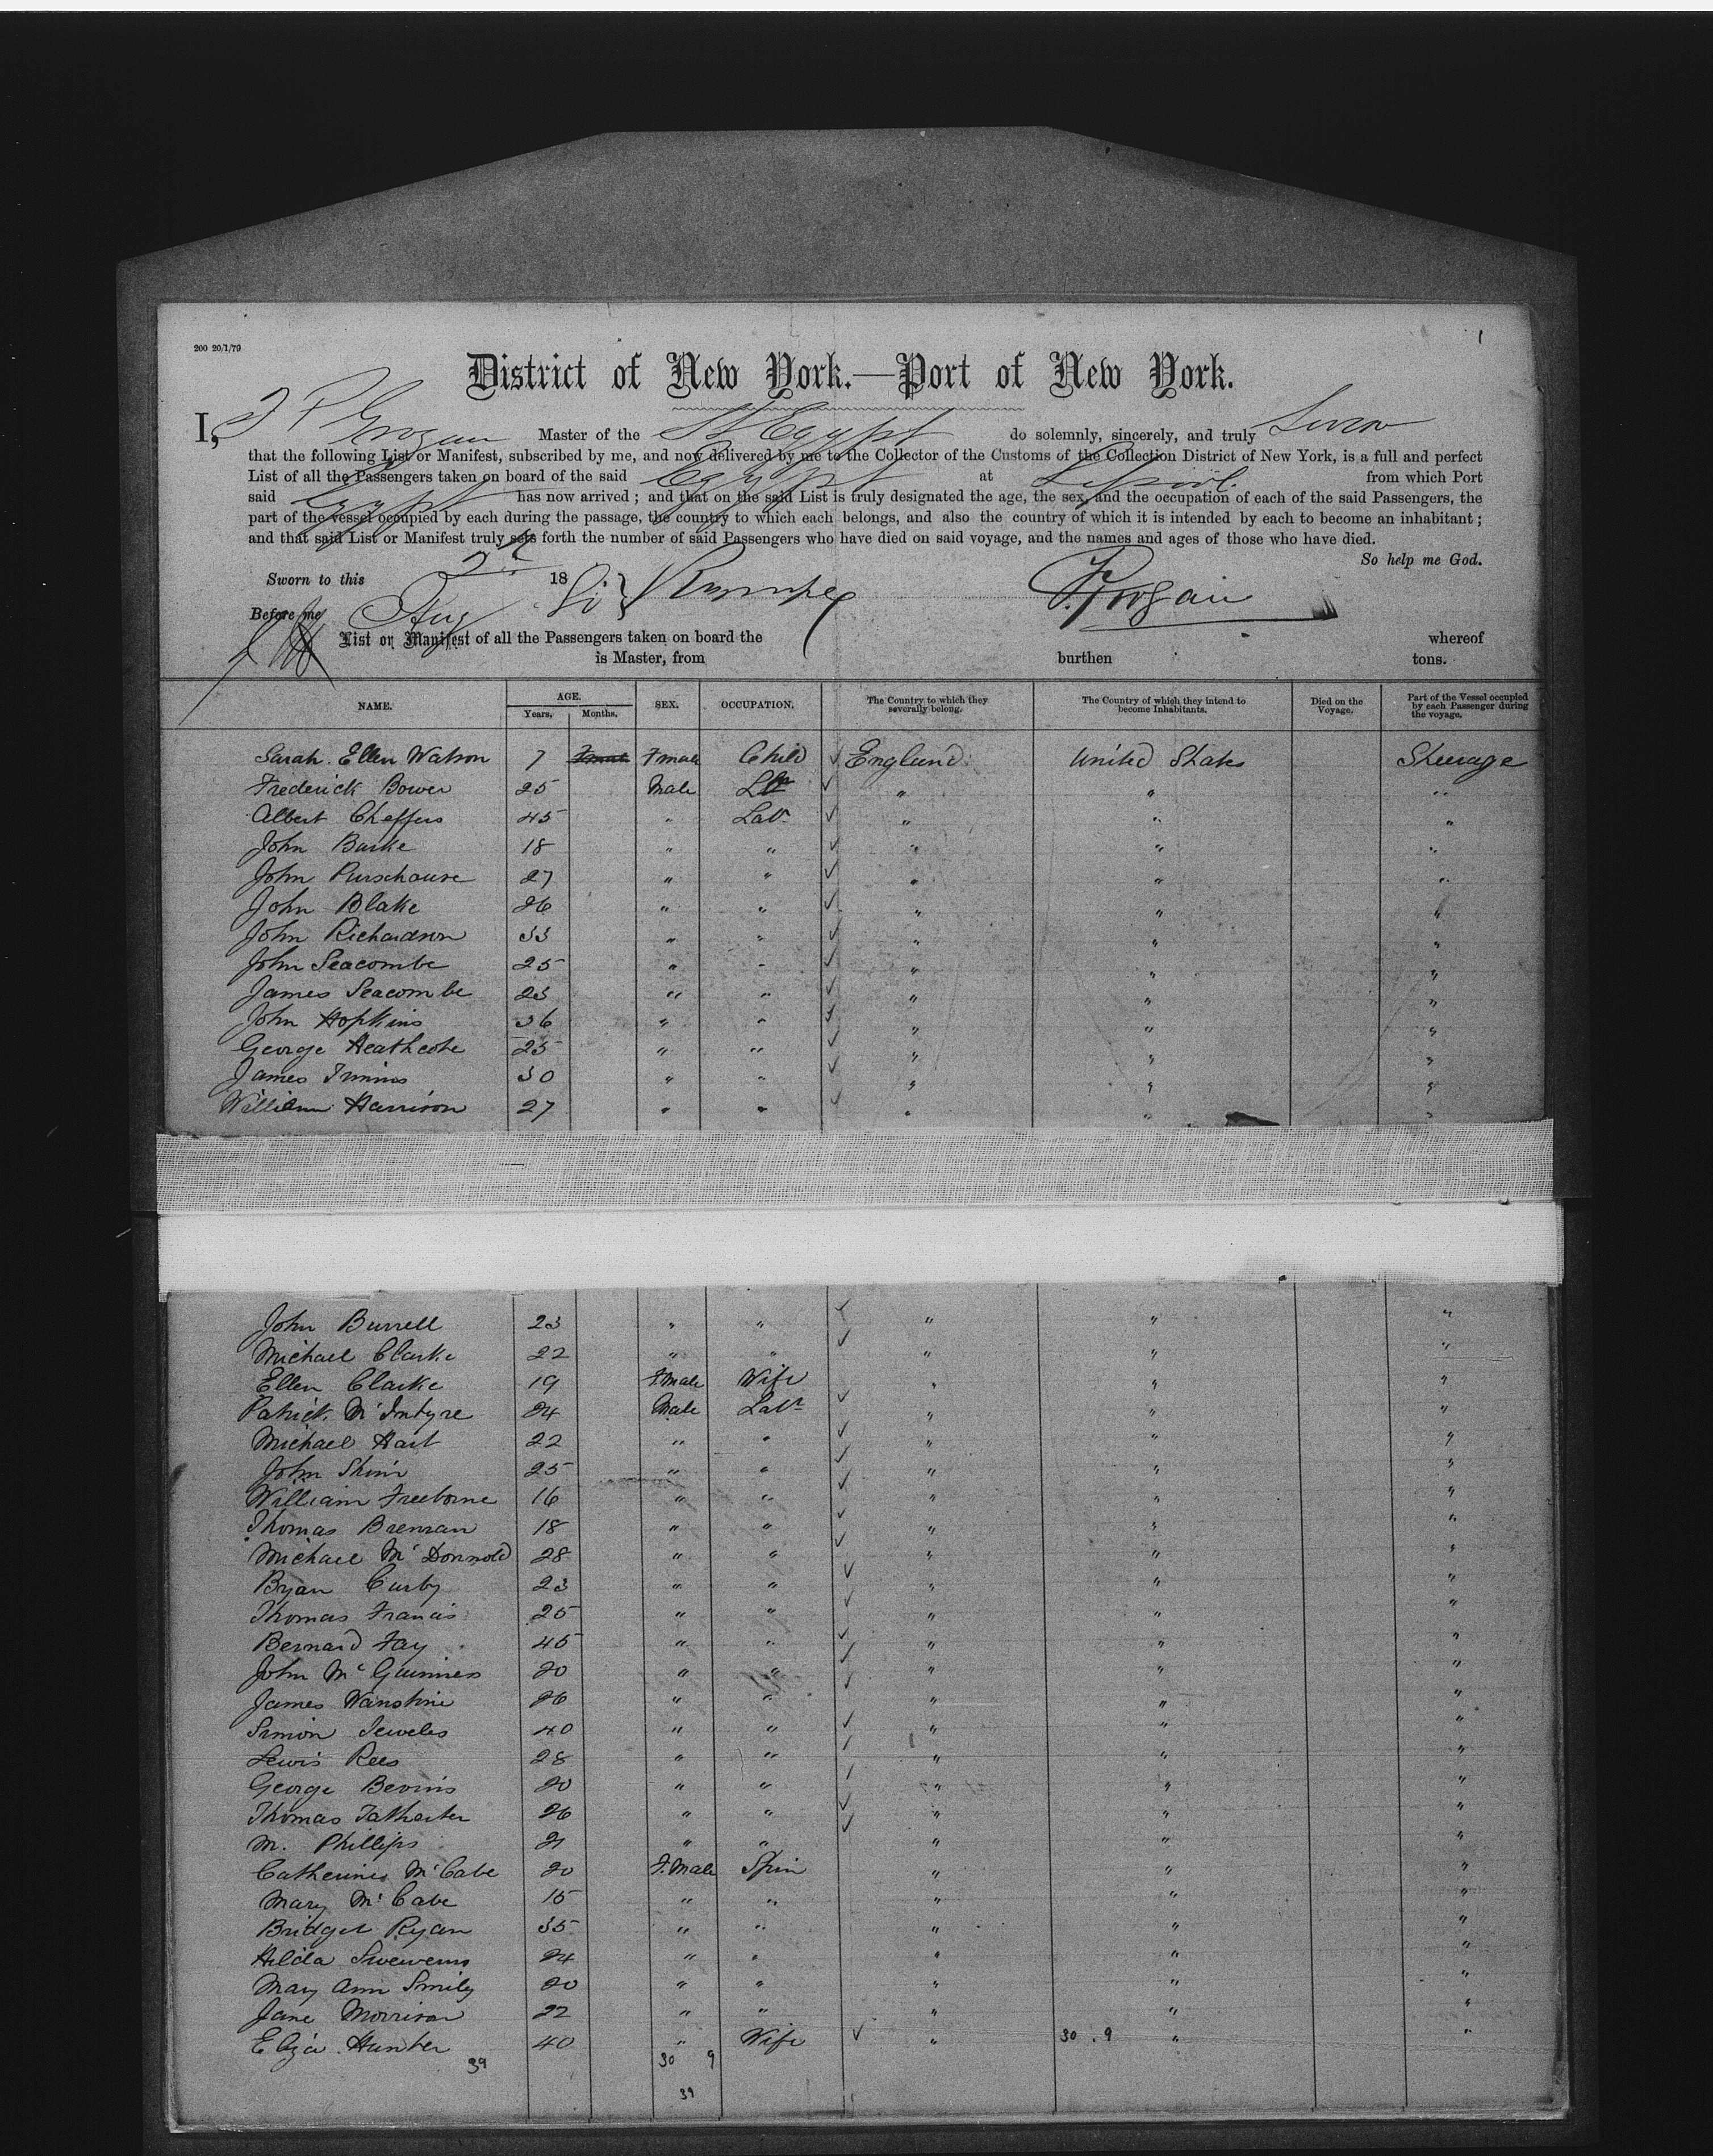 1
200 20/1/79
District of New York.—Port of New York.
I, Grogan Master of the SS Egypt do solemnly, sincerely, and truly Swear
that the following List or Manifest, subscribed by me, and now delivered by me to the Collector of the Customs of the Collection District of New York, is a full and perfect
List of all the Passengers taken on board of the said Egypt at L'pool. from which Port
said Egypt has now arrived; and that on the said List is truly designated the age, the sex, and the occupation of each of the said Passengers, the
part of the vessel occupied by each during the passage, the country to which each belongs, and also the country of which it is intended by each to become an inhabitant;
and that said List or Manifest truly sets forth the number of said Passengers who have died on said voyage, and the names and ages of those who have died.
So help me God.
Sworn to this 2d 18
Before me Aug Grogan
List or Manifest of all the Passengers taken on board the whereof
is Master, from burthen tons.
NAME. AGE. Years. Months. SEX. OCCUPATION. The Country to which they severally belong. The Country of which they intend to become Inhabitants. Died on the Voyage. Part of the Vessel occupied by each Passenger during the voyage.
Sarah Ellen Watson 7 Fmale Child England United States Steerage
Frederick Bower 25 Male " " "
Albert Cheffers 45 " Labr " " "
John Burke 18 " " " " "
John Purschouse 27 " " " " "
John Blake 26 " " " " "
John Richardson 33 " " " " "
John Seacombe 25 " " " " "
James Seacombe 23 " " " " "
John Hopkins 36 " " " " "
George Heathcote 25 " " " " "
James Timins 30 " " " " "
William Harrison 27 " " " " "
John Burrell 23 " " " " "
Michael Clarke 22 " " " " "
Ellen Clarke 19 F.Male Wife " " "
Patrick McIntyre 24 Male Labr " " "
Michael Hart 22 " " " " "
John 25 " " " " "
William Freeborne 16 " " " " "
Thomas Brennan 18 " " " " "
Michael McDonnold 28 " " " " "
Bryan Curby 23 " " " " "
Thomas Francis 25 " " " " "
Bernard Fay 45 " " " " "
John McGuinness 20 " " " " "
James 26 " " " " "
Simon Jeweles 40 " " " " "
Lewis Rees 28 " " " " "
George Bevins 20 " " " " "
Thomas 26 " " " " "
M. Phillips 21 " " " " "
Catherine McCabe 20 F.Male Spin " " "
Mary McCabe 15 " " " " "
Bridget Ryan 35 " " " " "
Hilda 24 " " " " "
Mary Ann Smily 20 " " " " "
Jane Morrison 22 " " " " "
Eliza Hunter 40 " Wife " 30 . 9 " "
39 30 9
39